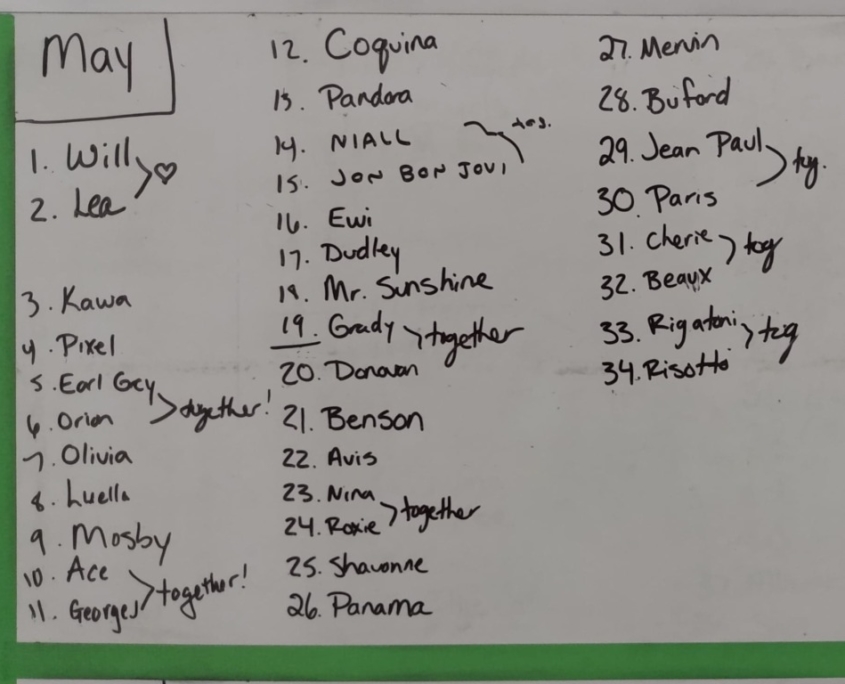 May
1. Will
♡
2. Lea
3. Kawa
4. Pixel
5. Earl Grey
together!
6. Orion
7. Olivia
8. Luella
9. Mosby
10. Ace
together!
11. Georges
12. Coquina
13. Pandora
14. NIALL
tog.
15. JON BON JOVI
16. Ewi
17. Dudley
18. Mr. Sunshine
19. Grady
together
20. Donovan
21. Benson
22. Avis
23. Nina
together
24. Roxie
25. Shavonne
26. Panama
27. Mervin
28. Buford
29. Jean Paul
tog.
30. Paris
31. Cherie
tog
32. Beaux
33. Rigatoni
tog
34. Risotto